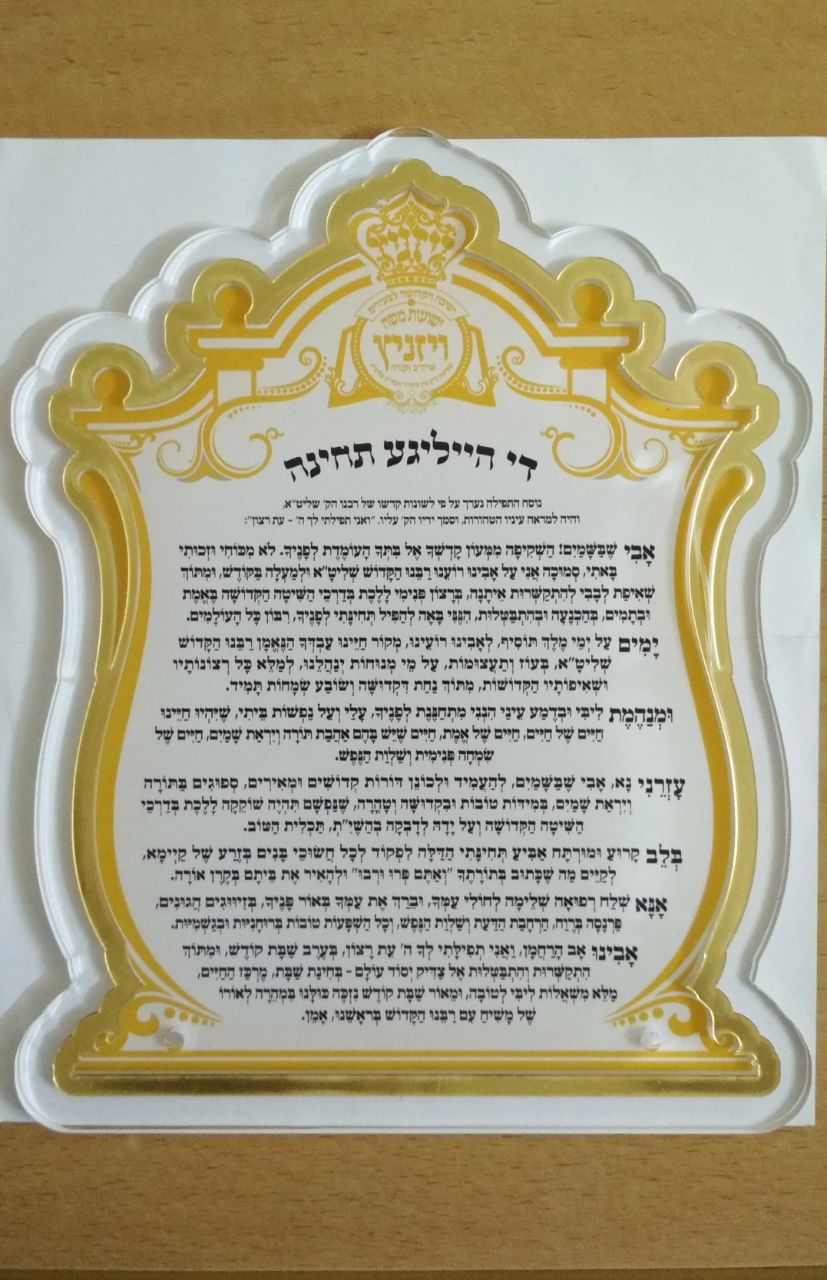 ויזניץ
ישיבה הקדושה לצעירים
ישועות משה
ויזניץ
די הייליגע תחינה
נוסח התפילה נערך על פי לשונות קדשו של רבנו הק' שליט"א,
והיה למראה עיניו הטהורות, וסמך ידיו הק' עליו. "ואני תפילתי לך ה' - עת רצון":
אָבִי שֶׁבַּשָּׁמַיִם! הַשְׁקִיפָה מִמְּעוֹן קָדְשְׁךָ אֶל בִּתְּךָ הָעוֹמֶדֶת לְפָנֶיךָ. לֹא מִכּוֹחִי וּזְכוּתִי
בָּאתִי, סְמוּכָה אֲנִי עַל אָבִינוּ רוֹעֵנוּ רַבֵּנוּ הַקָּדוֹשׁ שְׁלִיט"א וּלְמַעְלָה בַּקּוֹדֶשׁ, וּמִתּוֹךְ
שְׁאִיפַת לְבָבִי לְהִתְקַשְּׁרוּת אֵיתָנָה, בְּרָצוֹן פְּנִימִי לָלֶכֶת בְּדַרְכֵי הַשִּׁיטָה הַקְּדוֹשָׁה בֶּאֱמֶת
וּבְתָמִים, בְּהַכְנָעָה וּבְהִתְבַּטְּלוּת, הִנְנִי בָּאָה לְהַפִּיל תְּחִינָתִי לְפָנֶיךָ, רִבּוֹן כָּל הָעוֹלָמִים.
יָמִים עַל יְמֵי מֶלֶךְ תּוֹסִיף, לְאָבִינוּ רוֹעֵינוּ, מְקוֹר חַיֵּינוּ עַבְדְּךָ הַנֶּאֱמָן רַבֵּנוּ הַקָּדוֹשׁ
שְׁלִיט"א, בְּעוֹז וְתַעֲצוּמוֹת, עַל מֵי מְנוּחוֹת יְנַהֲלֵנוּ, לְמַלֵּא כָּל רְצוֹנוֹתָיו
וּשְׁאִיפוֹתָיו הַקְּדוֹשׁוֹת, מִתּוֹךְ נַחַת דִּקְדוּשָׁה וְשׂוֹבַע שְׂמָחוֹת תָּמִיד.
וּמְנַהֶמֶת לִיבִּי וּבְדֶמַע עֵינַי הִנְנִי מִתְחַנֶּנֶת לְפָנֶיךָ, עָלַי וְעַל נַפְשׁוֹת בֵּיתִי, שֶׁיִּהְיוּ חַיֵּינוּ
חַיִּים שֶׁל חַיִּים, חַיִּים שֶׁל אֱמֶת, חַיִּים שֶׁיֵּשׁ בָּהֶם אַהֲבַת תּוֹרָה וְיִרְאַת שָׁמַיִם, חַיִּים שֶׁל
שִׂמְחָה פְּנִימִית וְשַׁלְוַת הַנֶּפֶשׁ.
עָזְרֵנִי נָא, אָבִי שֶׁבַּשָּׁמַיִם, לְהַעֲמִיד וּלְכוֹנֵן דּוֹרוֹת קְדוֹשִׁים וּמְאִירִים, סְפוּגִים בַּתּוֹרָה
וְיִרְאַת שָׁמַיִם, בְּמִידּוֹת טוֹבוֹת וּבִקְדוּשָׁה וְטָהֳרָה, שֶׁנַּפְשָׁם תִּהְיֶה שׁוֹקֵקָה לָלֶכֶת בְּדַרְכֵי
הַשִּׁיטָה הַקְּדוֹשָׁה וְעַל יָדָהּ לְדָבְקָה בְּהַשֵּׁי"ת, תַּכְלִית הַטּוֹב.
בְּלֵב קָרוּעַ וּמוּרְתָּח אַבִּיעַ תְּחִינָתִי הַדַּלָּה לִפְקוֹד לְכָל חֲשׂוּכֵי בָּנִים בְּזַרְעָא שֶׁל קַיָּימָא,
לְקַיֵּים מַה שֶּׁכָּתוּב בְּתוֹרָתֶךָ "וְאַתֶּם פְּרוּ וּרְבוּ" וּלְהָאִיר אֶת בֵּיתָם בְּקֶרֶן אוֹרָה.
אָנָּא שְׁלַח רְפוּאָה שְׁלֵימָה לְחוֹלֵי עַמֶּךָ, וּבָרֵךְ אֶת עַמְּךָ בְּאוֹר פָּנֶיךָ, בְּזִיוּוּגִים הֲגוּנִים,
פַּרְנָסָה בְּרֶוַח, הַרְחָבַת הַדַּעַת וְשַׁלְוַת הַנֶּפֶשׁ, וְכָל הַשְׁפָּעוֹת טוֹבוֹת בְּרוּחָנִיּוּת וּבְגַשְׁמִיּוּת.
אָבִינוּ אָב הָרַחֲמָן, וַאֲנִי תְפִילָּתִי לְךָ ה' עֵת רָצוֹן, בְּעֶרֶב שַׁבַּת קוֹדֶשׁ, וּמִתּוֹךְ
הִתְקַשְּׁרוּת וְהִתְבַּטְּלוּת אֶל צַדִּיק יְסוֹד עוֹלָם - בְּחִינַת שַׁבָּת, מֶרְכַּז הַחַיִּים,
מַלֵּא מִשְׁאֲלוֹת לִיבִּי לְטוֹבָה, וּמֵאוֹר שַׁבַּת קוֹדֶשׁ נִזְכֶּה כּוּלָּנוּ בִּמְהֵרָה לְאוֹרוֹ
שֶׁל מָשִׁיחַ עִם רַבֵּנוּ הַקָּדוֹשׁ בְּרֹאשֵׁנוּ, אָמֵן.